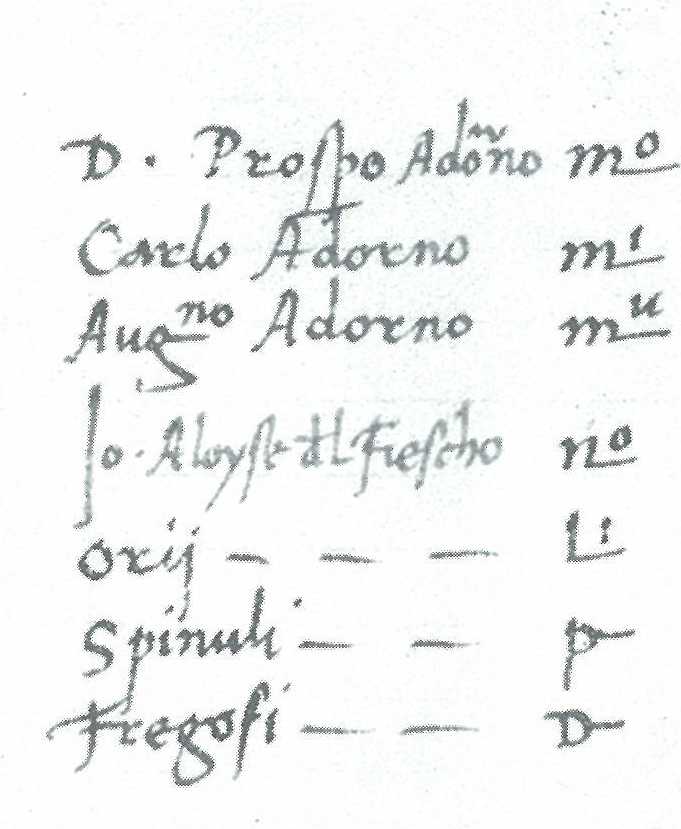 D. Prospo Adorno mº
Carlo Adorno mⁱ
Augⁿᵒ Adorno mᵘ
Jo. Aloyse dl Fiescho nº
Orij — — — Lⁱ
Spinuli — — p
Fregosi — — D